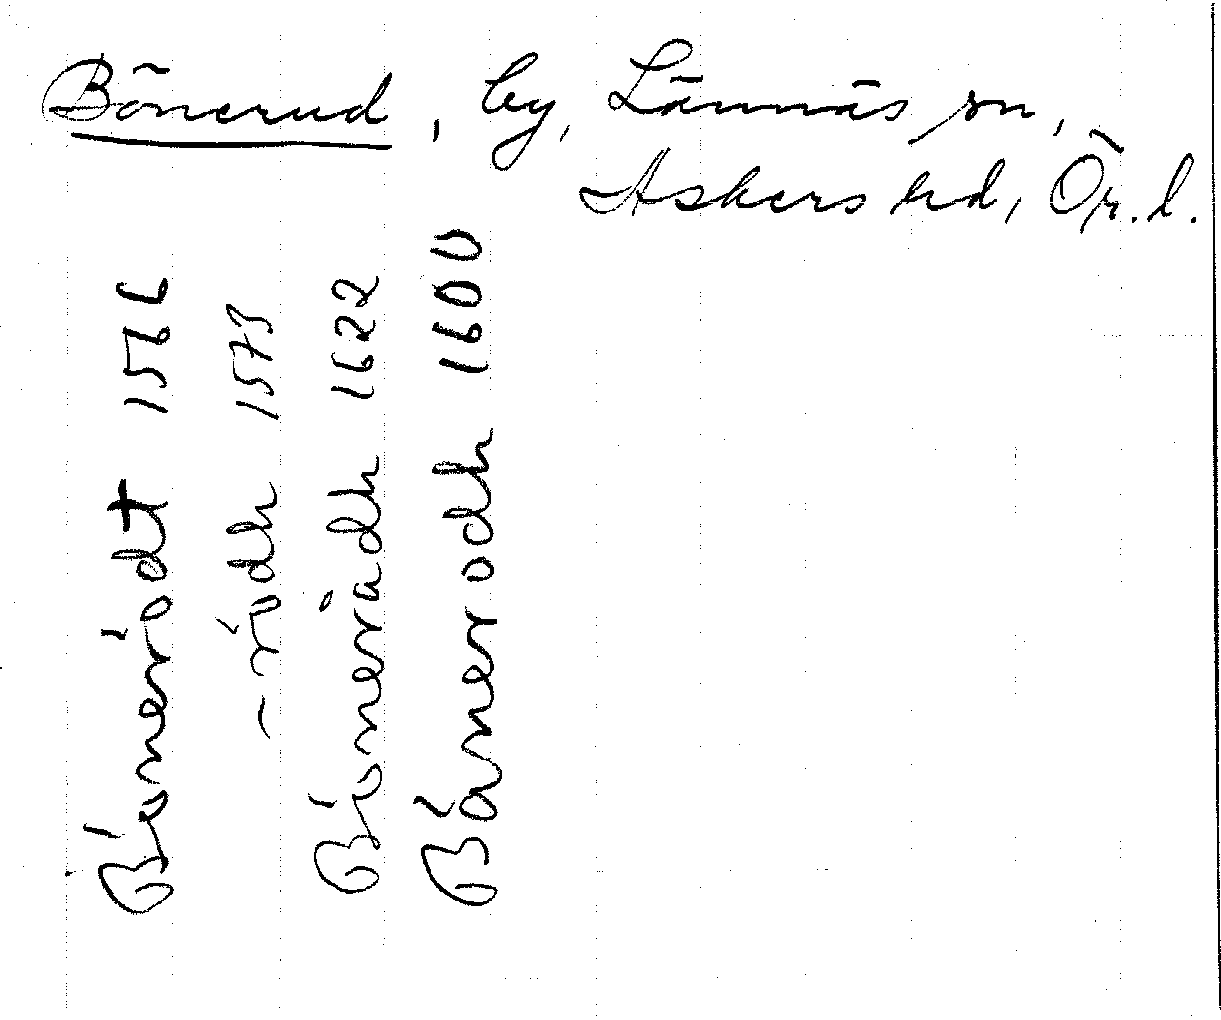 Bönerud, by, Lännäs sn,
Askers hd, Ör. l.
Biönerödt 1566
– rödh 1573
Biönerådh 1622
Bänerodh 1600